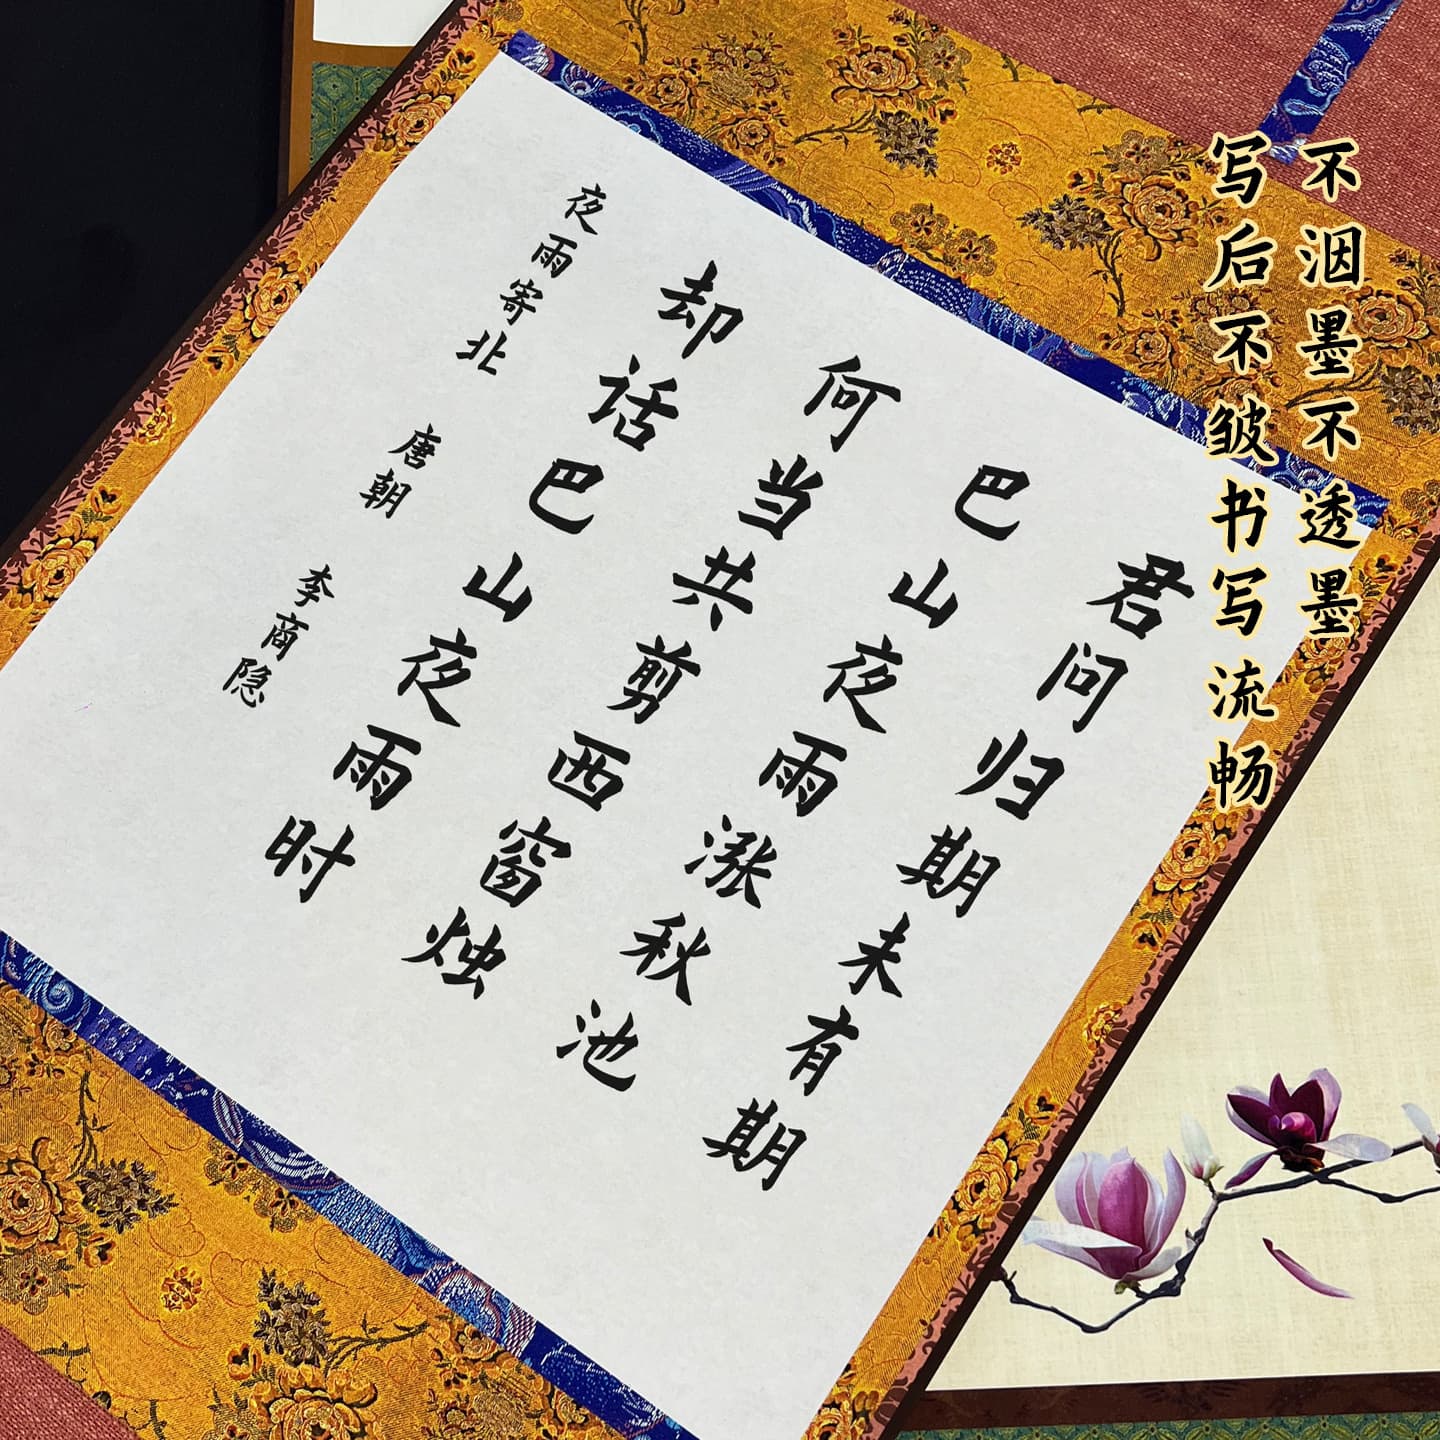 不洇墨不透墨
写后不皱书写流畅
君问归期未有期
巴山夜雨涨秋池
何当共剪西窗烛
却话巴山夜雨时
夜雨寄北 唐朝 李商隐